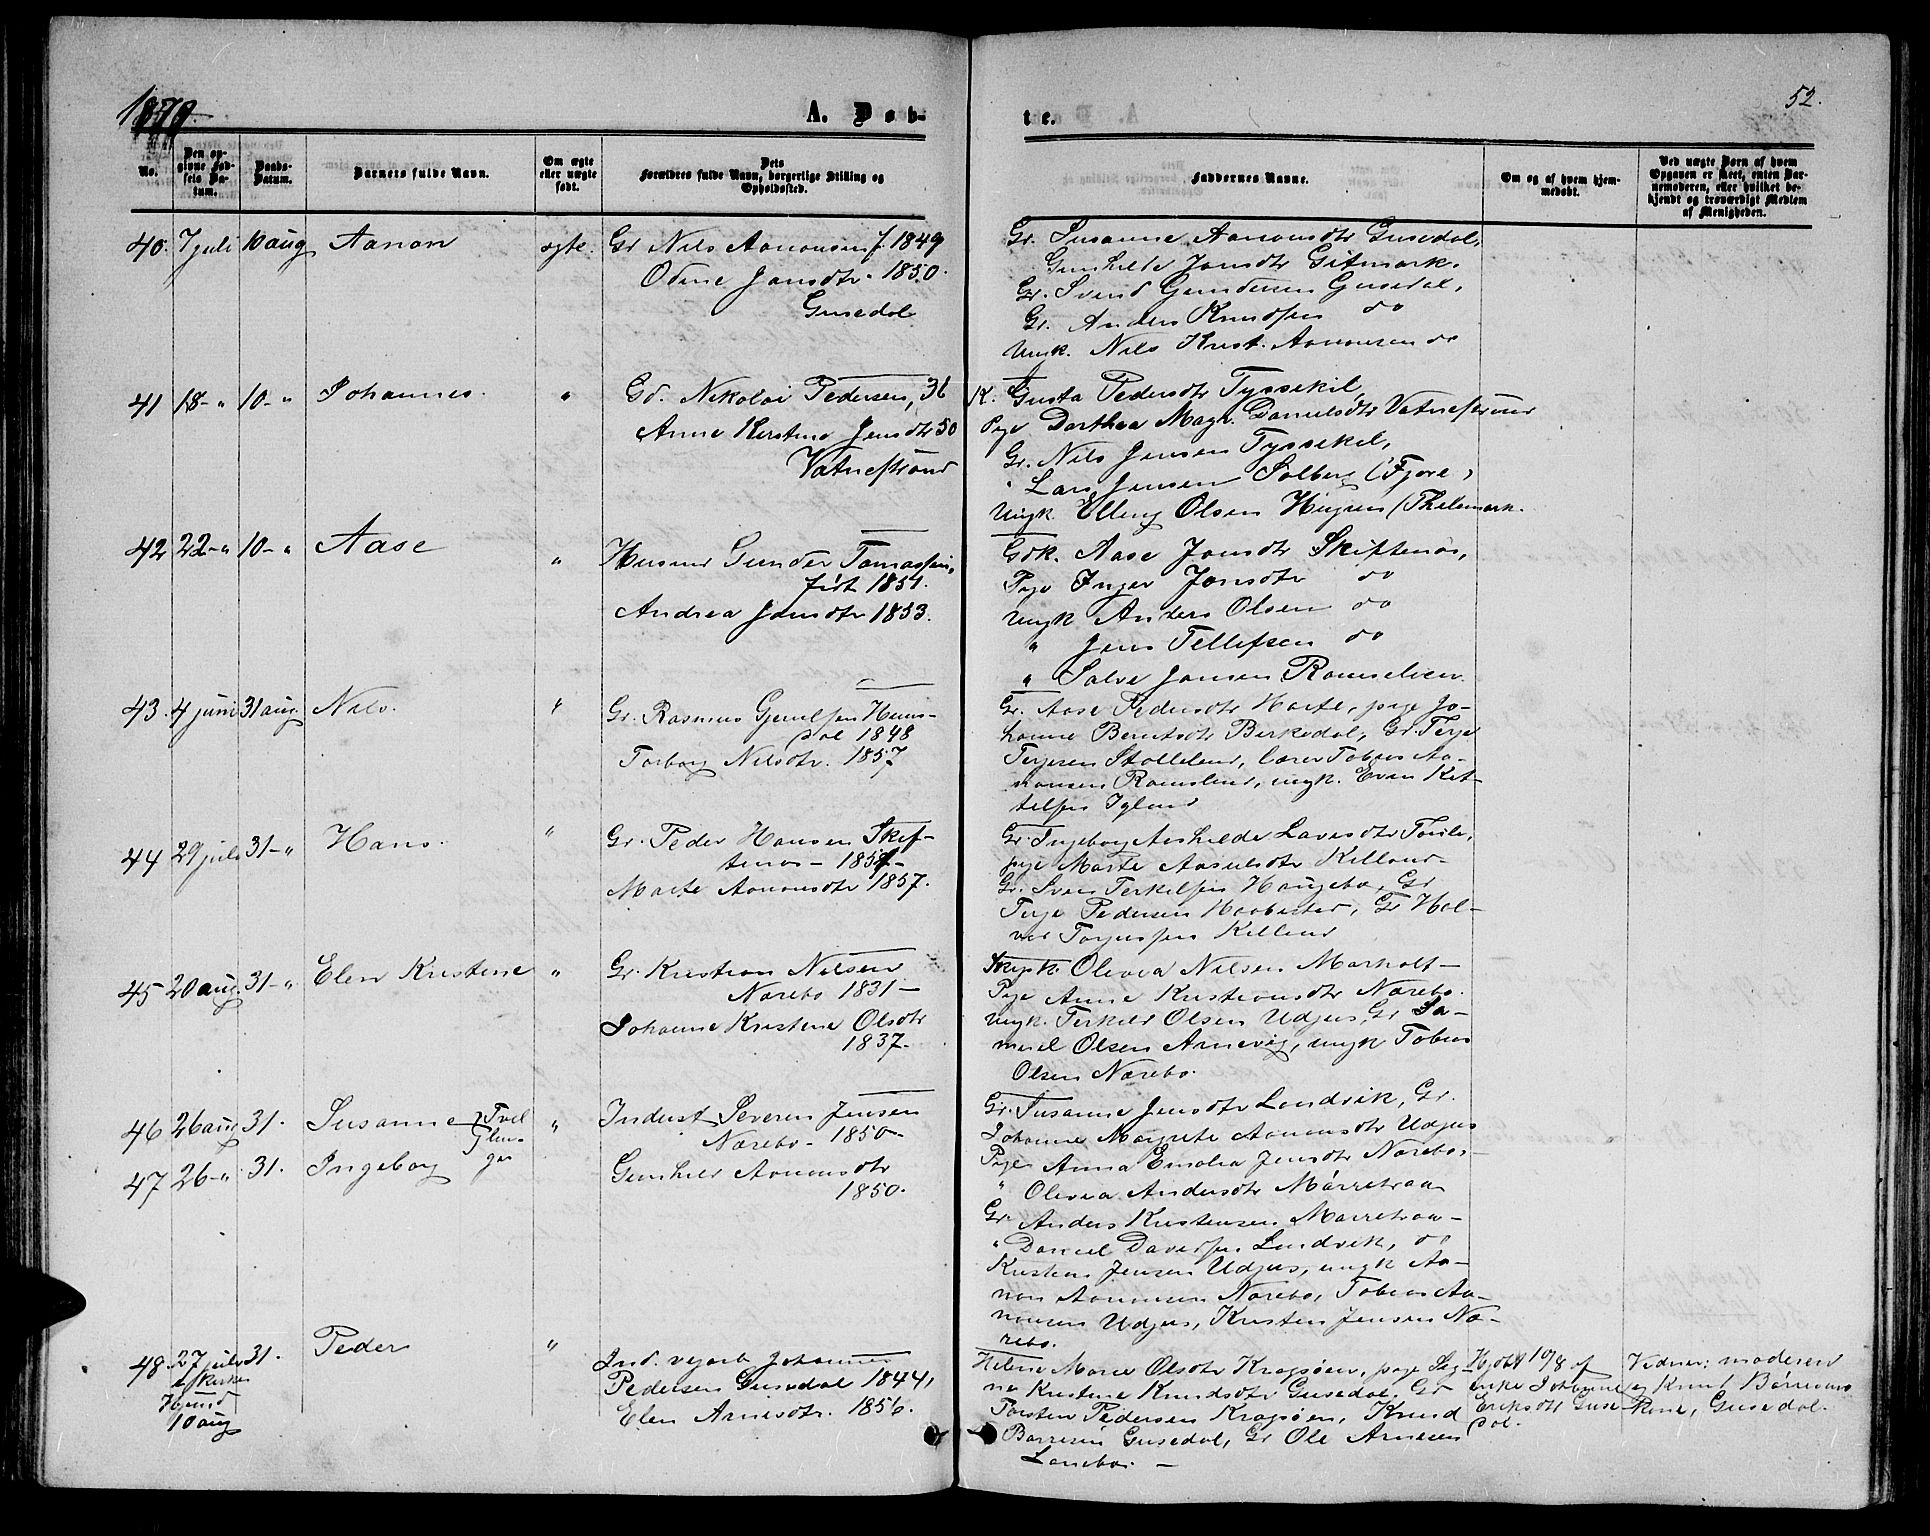 1879.
A. Døb-
te.
52.
No.
Den op-
givne Fød-
sels Da-
tum.
Daabs-
Datum.
Barnets fulde Navn.
Om ægte
eller uægte
født.
Dets
Forældres fulde Navn, borgerlige Stilling og
Opholdssted.
Faddernes Navne.
Om og af hvem hjem-
medøbt.
Ved uægte Børn af hvem
Opgaven er skeet, enten Bar-
nemoderen, eller hvilket be-
kjendt og troværdigt Medlem
af Menigheden.
40. 7 juli 10 aug Aanon ægte. Gr Nils Aanonsen f. 1849
Odine Jansdtr. 1850.
Gusedal
Gr. Susanne Aanonsdtr Gusedal,
Gunhilde Jonsdtr Gitmark.
Gr. Svend Gundersen Gusedal,
Gr. Anders Knudsen do
Ungk. Nils Krist. Aanonsen do
41 18-" 10-" Johannes. " Gd. Nikolai Pedersen, 36
Anne Kirstine Jensdtr 50
Vatnestrand
K. Gusta Pedersdtr Tyssekil,
Pige Dorthea Magr. Danielsdtr Vatnestrand
Gr. Nils Jensen Tyssekil,
" Lars Jensen Solberg (Fjære)
Ungk. Elling Olsen (Thelemark.
42 22-" 10-" Aase " Husmd Gunder Tomassen,
født 1851.
Andrea Jansdtr 1853.
Gdk. Aase Jonsdtr Skiftenæs,
Pige Inger Jonsdtr do
Ungk Anders Olsen do
" Jens Tellefsen do
" Salve Jansen Ramselien
43. 4 juni 31 aug Nils. " Gr. Rasmus Gjeruldsen Huns-
dal 1848
Torborg Nilsdtr. 1857
Gr. Aase Pedersdtr Harte, pige Jo-
hanne Berntsdtr Birkedal, Gr. Terje
Terjesen Stalleland, lærer Tobias Aa-
nonsen Ramsland, ungk. Even Ket-
telsen Igland
44 29 juli 31-" Hans. " Gr. Peder Hansen Skif-
tenæs- 1854-
Marte Aanonsdtr 1857.
Gr. Ingeborg Aashilde Larsdtr
pige Marte Aasulsdtr Killand-
Gr. Sven Terkelsen Haugebo, Gr
Terje Pedersen Haabestad, Gr Hal-
vor Torjussen Killand
45 20 aug. 31-" Elen Kristine " Gr. Kristian Nilsen
Nærebo 1831-
Johanne Kristine Olsdtr
1837.
Olevia Nilsen Marholt-
Pige Anne Kristiansdtr Nærebo.
Ungk. Terkild Olsen Udjus, Gr Sa-
muel Olsen Arnevig, ungk Tobias
Olsen Nærebo.
46 26 aug 31. Susanne } Tvil " Indust Severin Jensen
Nærebo- 1850-
47 26-" 31. Ingeborg lin-
ger
Gunhild Aanonsdtr
1850.
Gr. Susanne Jensdtr Landvik, Gr.
Johanne Margrete Aanonsdtr Udjus
Pige Anna Emalia Jensdtr Nærebo-
" Olevia Andersdtr Mørretraa
Gr Anders Kristensen Mørretraa-
" Daniel Davidsen Landvik, do
Kristian Jensen Udjus, ungk Aa-
non Aanonsen Nærebo, Tobias Aa-
nonsen Udjus, Kristen Jensen Næ-
rebo.
48. 27 juli 31. Peder " Ind. vejarb Johannes
i kirken
Hjemd
10 aug
Pedersen Gusedal 1844,
Elen Arnesdtr. 1856.
Helene Marie Olsdtr Kragsøen, pige Sig-
ne Kristine Knudsdtr Gusedal. Gr
Torsten Pedersen Kragsøen, Knud
Børresen Gusedal, Gr Ole Arnesen
Lonebo. -
Hjdbt 10/8 af
enke Johanne
Eriksdtr Guse-
dal.
Vidner: moderen
og Knud Børresens
Kone, Gusedal.